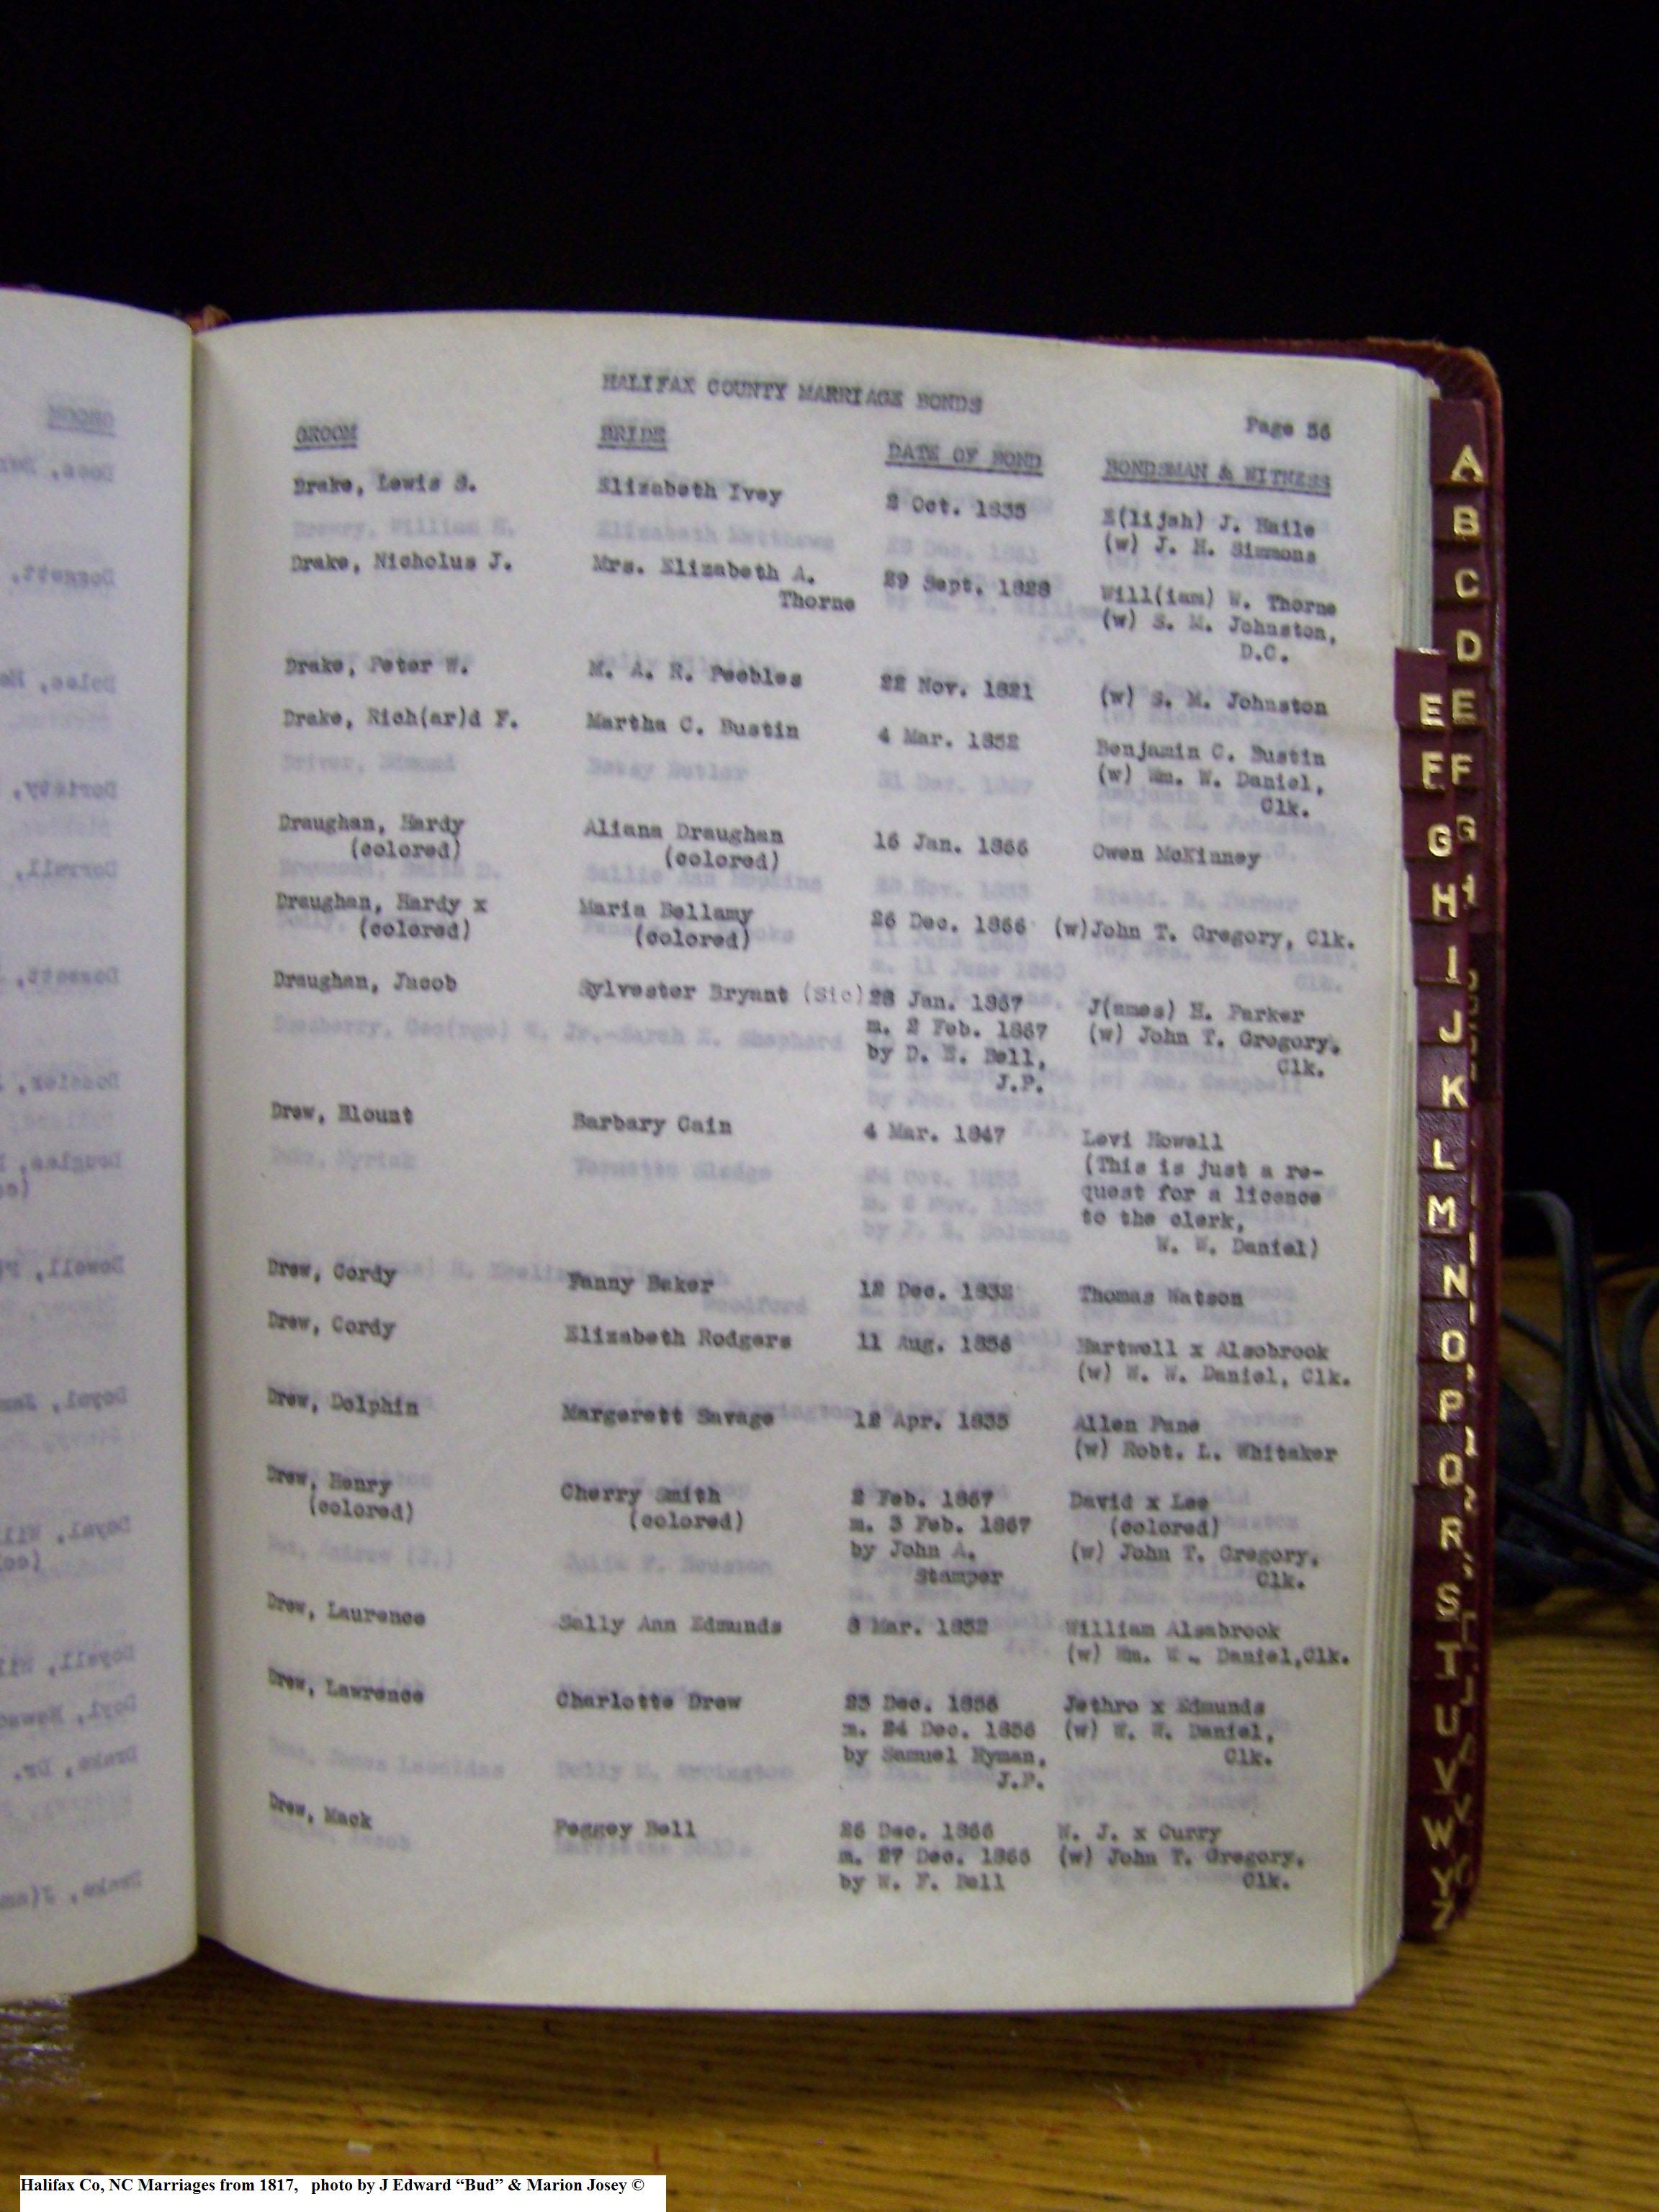 HALIFAX COUNTY MARRIAGE BONDS
Page 56
GROOM BRIDE DATE OF BOND BONDSMAN & WITNESS
Drake, Lewis S. Elizabeth Ivey 2 Oct. 1835 E(lijah) J. Haile
(w) J. H. Simmons
Drake, Nicholus J. Mrs. Elizabeth A. 29 Sept. 1828 Will(iam) W. Thorne
Thorne (w) S. M. Johnston,
D.C.
Drake, Peter W. M. A. R. Peebles 22 Nov. 1821 (w) S. M. Johnston
Drake, Rich(ar)d F. Martha C. Bustin 4 Mar. 1852 Benjamin C. Bustin
(w) Wm. W. Daniel,
Clk.
Draughan, Hardy Aliana Draughan 16 Jan. 1866 Owen McKinney
(colored) (colored)
Draughan, Hardy x Maria Bellamy 26 Dec. 1866 (w)John T. Gregory, Clk.
(colored) (colored)
Draughan, Jacob Sylvester Bryant (Sic) 28 Jan. 1867 J(ames) H. Parker
m. 2 Feb. 1867 (w) John T. Gregory,
by D. E. Bell, Clk.
J.P.
Drew, Blount Barbary Cain 4 Mar. 1847 Levi Howell
(This is just a re-
quest for a licence
to the clerk,
W. W. Daniel)
Drew, Cordy Fanny Baker 12 Dec. 1832 Thomas Watson
Drew, Cordy Elizabeth Rodgers 11 Aug. 1856 Hartwell x Alsobrook
(w) W. W. Daniel, Clk.
Drew, Dolphin Margerett Savage 12 Apr. 1835 Allen Pane
(w) Robt. L. Whitaker
Drew, Henry Cherry Smith 2 Feb. 1867 David x Lee
(colored) (colored) m. 3 Feb. 1867 (colored)
by John A. (w) John T. Gregory,
Stamper Clk.
Drew, Laurence Sally Ann Edmunds Mar. 1852 William Alsabrook
(w) Wm. W. Daniel,Clk.
Drew, Lawrence Charlotte Drew 23 Dec. 1856 Jethro x Edmunds
m. 24 Dec. 1856 (w) W. W. Daniel,
by Samuel Hyman, Clk.
J.P.
Drew, Mack Peggey Bell 26 Dec. 1866 W. J. x Curry
m. 27 Dec. 1866 (w) John T. Gregory,
by W. F. Bell Clk.
A
B
C
D
E E
F F
G G
H
I
J
K
L
M
N
O
P
Q
R
S
T
U
V
W
Y
Z
Halifax Co, NC Marriages from 1817, photo by J Edward “Bud” & Marion Josey ©